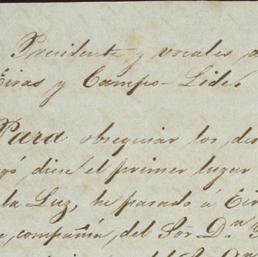 Presidente y vocales d
Eiras y Campo-Lide.
Para obsequiar los des
gó diese el primer lugar
la Luz, he pasado á Eir
compañía, del Sor D.n